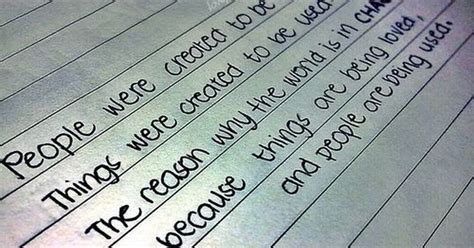 People were created to be
Things were created to be used.
The reason why the world is in CHA
because things are being loved,
and people are being used.